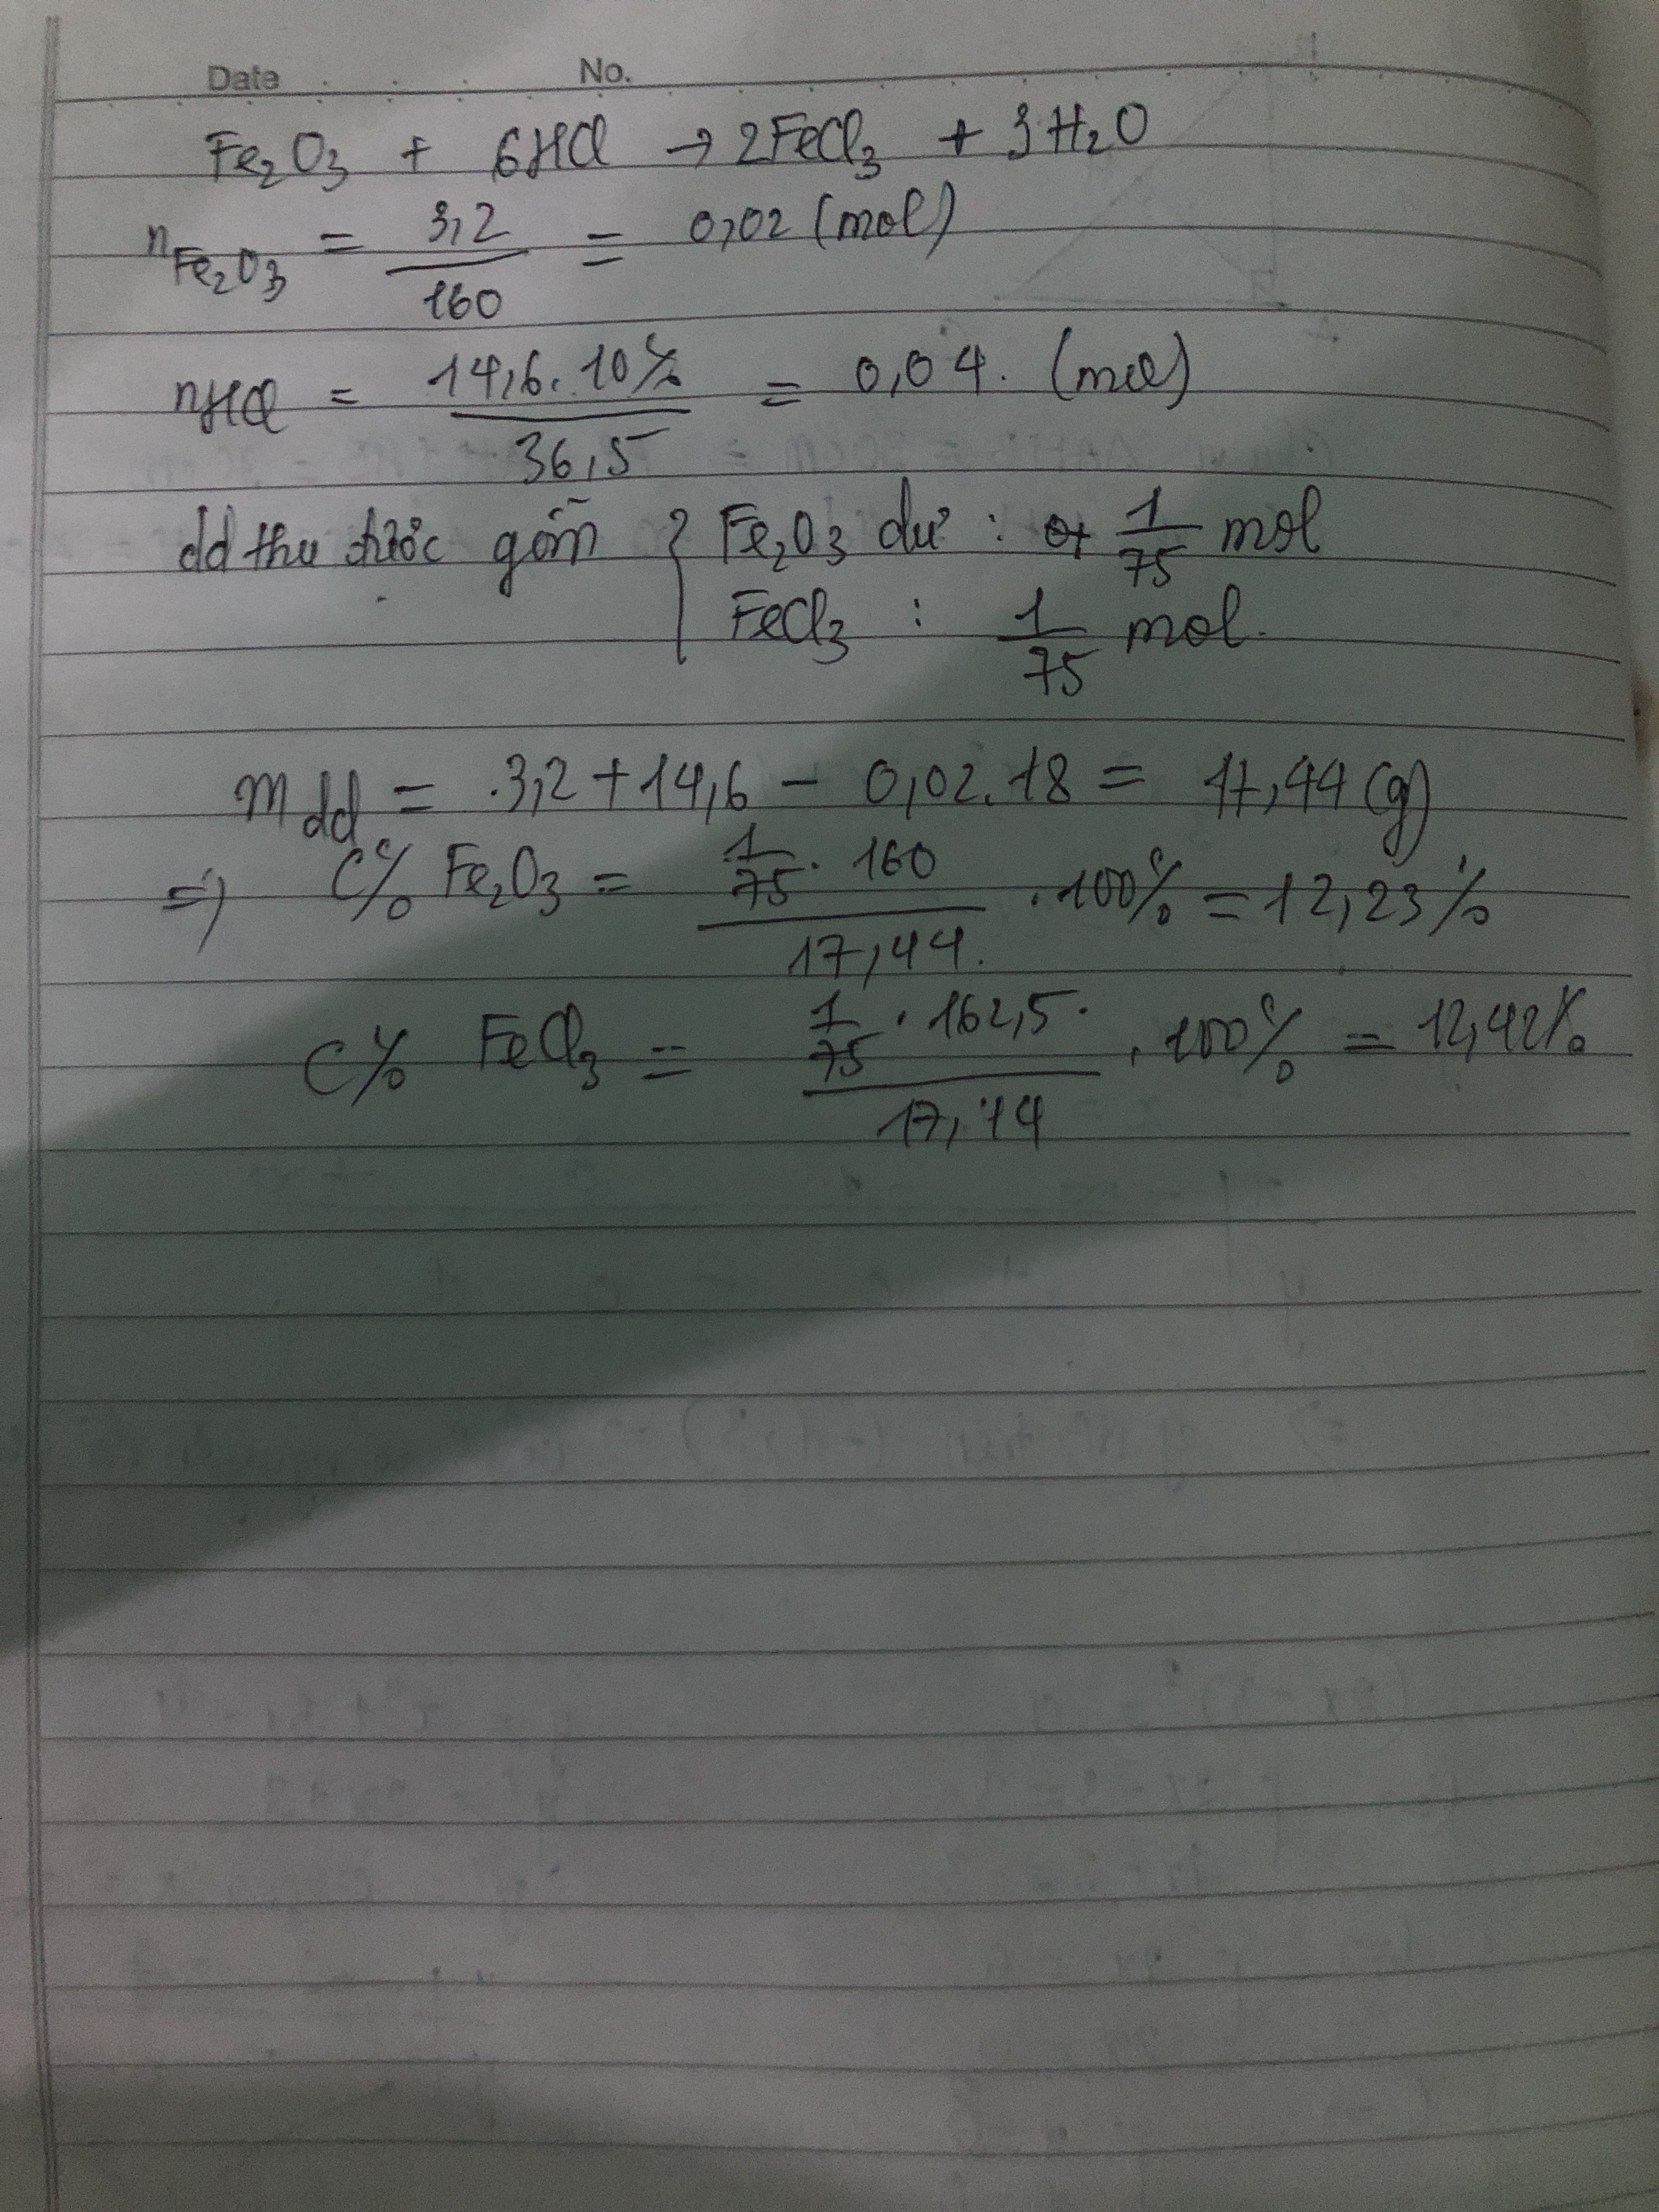 Date No.
Fe₂O₃ + 6HCl → 2FeCl₃ + 3H₂O
nFe₂O₃ = 3,2/160 = 0,02 (mol)
nHCl = 14,6.10%/36,5 = 0,04. (mol)
dd thu được gồm { Fe₂O₃ dư : 1/75 mol
FeCl₃ : 1/75 mol.
mdd = 3,2 + 14,6 - 0,02.18 = 17,44 (g)
=> C% Fe₂O₃ = (1/75 . 160)/17,44. . 100% = 12,23%
C% FeCl₃ = (1/75 . 162,5)/17,44 . 100% = 12,42%